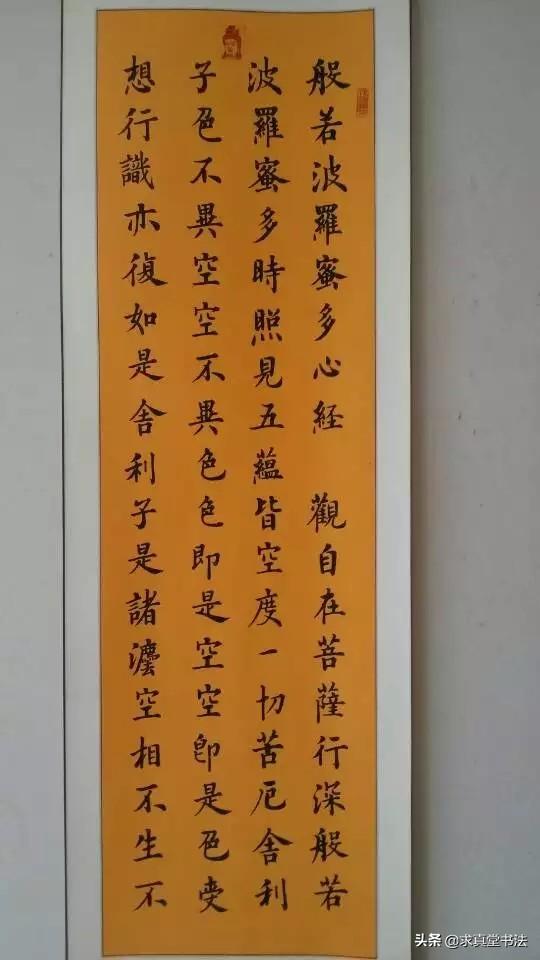 般若波羅蜜多心経 觀自在菩薩行深般若
波羅蜜多時照見五蘊皆空度一切苦厄舎利
子色不異空空不異色色即是空空即是色受
想行識亦復如是舎利子是諸灋空相不生不
头条 @求真堂书法